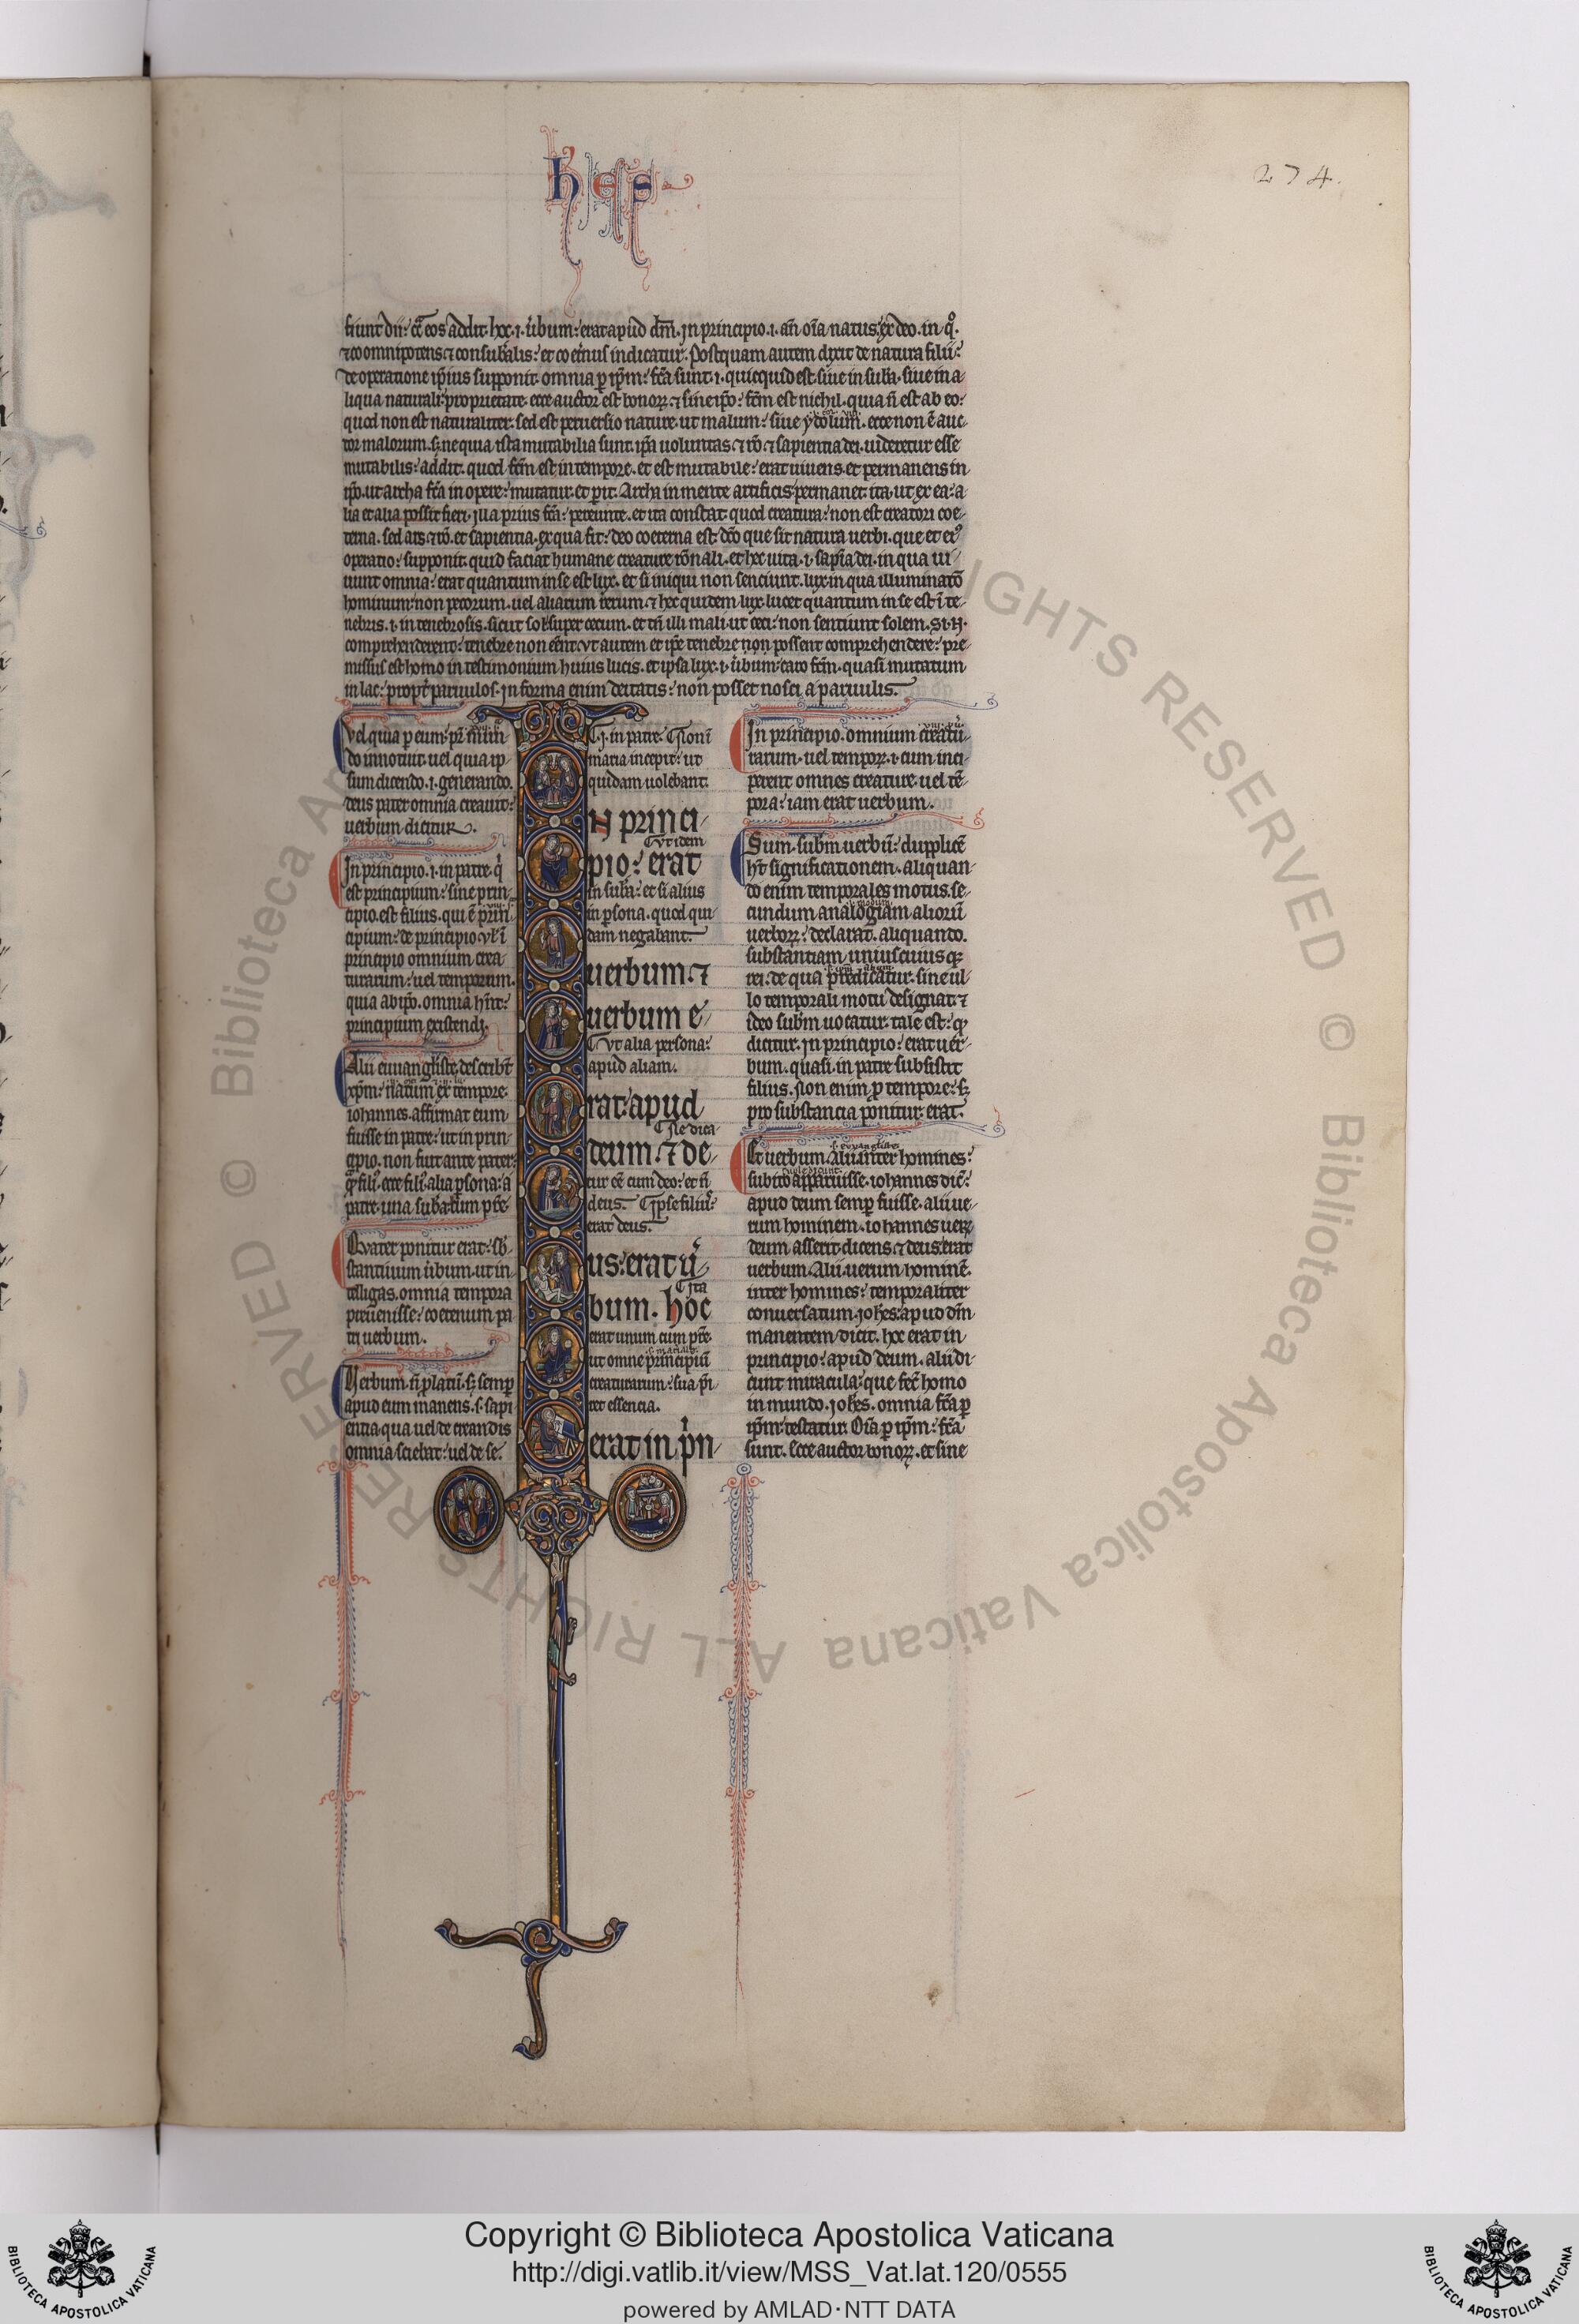 hes
274.
fiunt dii: cͣ eos addit. hoc .i. u̓bum: erat apud dm̅. In principio .i. an̅ oi̅a natus ex deo. in qͦ.
⁊ coomnipotens ⁊ consub̅alis: et coet̓nus indicatur. Postquam autem dixit de natura filii:
de operatione ip̅ius supponit. omnia ꝑ ip̅m: fc̅a sunt .i. quicquid est siue in sub̅a. siue in a-
liqua naturali proprietate. ecce auctor est bonoꝝ. ⁊ sine ip̅o: fc̅m est nichil. quia si est ab eo:
quod non est naturaliter. sed est peruersio nature. ut malum: siue ydolum. ecce non e̅ auc-
tor malorum. sꝫ ne quia ista mutabilia sunt. ip̅a uoluntas ⁊ ro̅ ⁊ sapientia dei. uideretur esse
mutabilis: addit. quod fc̅m est in tempore. et est mutabile: erat uiuens et permanens in
ip̅o. ut archa fc̅a in opere: mutatur. et ꝑit. Archa in mente artificis permanet. ita ut ex ea: a-
lia et alia possit fieri. illa prius fc̅a: pereunte. et ita constat quod creatura: non est creatori coe-
terna. sed ars ⁊ ro̅. et sapientia. ex qua fit: deo coeterna est. dc̅o que sit natura uerbi. que et ei᷒
operatio: supponit. quid faciat humane creature ro̅nali. et hec uita .i. sapi̅a dei. in qua ui-
uunt omnia: erat quantum in se est lux. et si iniqui non senciunt. lux in qua illuminaco̅
hominum: non pecorum. uel aliarum rerum. ⁊ hec quidem lux lucet quantum in se est i̅ te-
nebris .i. in tenebrosis. sicut sol super cecum. et tn̅ illi mali ut ceci: non sentiunt solem. Si .n.
comprehenderent: tenebre non ee̅nt. ut autem et ip̅e tenebre non possent comprehendere: pre-
missus est homo in testimonium huius lucis. et ipsa lux .i. u̓bum: caro fc̅m. quasi mutatum
in lac: propt̓ paruulos. in forma enim deitatis: non posset nosci a paruulis.
Vel quia ꝑ eum: pr̅
do innotuit. uel quia ip-
sum dicendo .i. generando.
deus pater omnia creauit:
uerbum dicitur.
In principio .i. in patre. q̓
est principium: sine prin-
cipio. est filius. qui e̅ prin-
cipium: de principio. ul̓ i̅
principio omnium crea-
turarum: uel temporum.
quia ab ip̅o. omnia hn̅t:
principium existendi.
Alii euuangliste describt̅
xpm̅: natum ex tempore.
iohannes. affirmat eum
fuisse in patre: ut in prin-
cipio. non fuit ante pater:
q̅ fili᷒. ecce fili᷒. alia ꝑsona: a
patre. una sub̅a: cum pr̅e.
Quater ponitur erat: sb̅-
stantiuum u̓bum. ut in-
telligas. omnia tempora
preuenisse: coeternum pa-
tri uerbum.
Verbum n̅ ꝓlatu̅. sꝫ semꝑ
apud eum manens .s. sapi
entia. qua uel de creandis
omnia sciebat: uel de se.
.i. in patre. Non i̅
maria incepit: ut
quidam uolebant.
N princi-
Ut idem
pio: erat
in sub̅a: et si alius
in ꝑsona. quod qui-
dam negabant.
uerbum. ⁊
uerbum e-
Ut alia persona:
apud aliam.
rat: apud
Ne dica-
deum. ⁊ de-
tur ee̅ cum deo: et n̅
deus. Ipse fili᷒:
erat deus.
us: erat u̓
Ita
bum. hoc
erat unum cum pr̅e.
ut omne principiu̅
creaturarum: sua pͥ-
cet essencia.
erat in pͥn-
In principio. omnium creatu-
rarum. uel tempoꝝ .i. cum inci-
perent omnes creature uel te̅-
pora: iam erat uerbum.
Sum. sub̅m uerbu̅: dupplice̅
ht̅ significationem. aliquan-
do enim temporales motus. se-
cundum analogiam alioru̅
uerboꝝ: declarat. aliquando.
substantiam uniuscuiusqꝫ
rei. de qua predicatur. sine ul-
lo temporali motu designat. ⁊
ideo sub̅m uocatur. tale est: qd̓
dicitur. in principio: erat uer-
bum. quasi. in patre subsistit
filius. Non enim ꝑ tempore: sꝫ
pro substancia ponitur. erat.
.s. euuangliste
Et uerbum. Alii inter homines:
subito apparuisse. iohannes dic̅:
apud deum semꝑ fuisse. alii ue-
rum hominem. iohannes ueꝝ
deum asserit. dicens. ⁊ deus erat
uerbum. Alii. uerum homine̅.
inter homines: temporaliter
conuersatum. ioh̅es: apud dm̅
manentem dicit. hoc erat in
principio: apud deum. alii di-
cunt miracula: que fec̅ homo
in mundo. ioh̅es. omnia fc̅a ꝑ
ip̅m: testatur. Oi̅a ꝑ ip̅m: fc̅a
sunt. Ecce auctor bonoꝝ. et sine
Copyright © Biblioteca Apostolica Vaticana
http://digi.vatlib.it/view/MSS_Vat.lat.120/0555
powered by AMLAD·NTT DATA
BIBLIOTECA APOSTOLICA VATICANA
BIBLIOTECA APOSTOLICA VATICANA
© Biblioteca Apostolica Vaticana ALL RIGHTS RESERVED